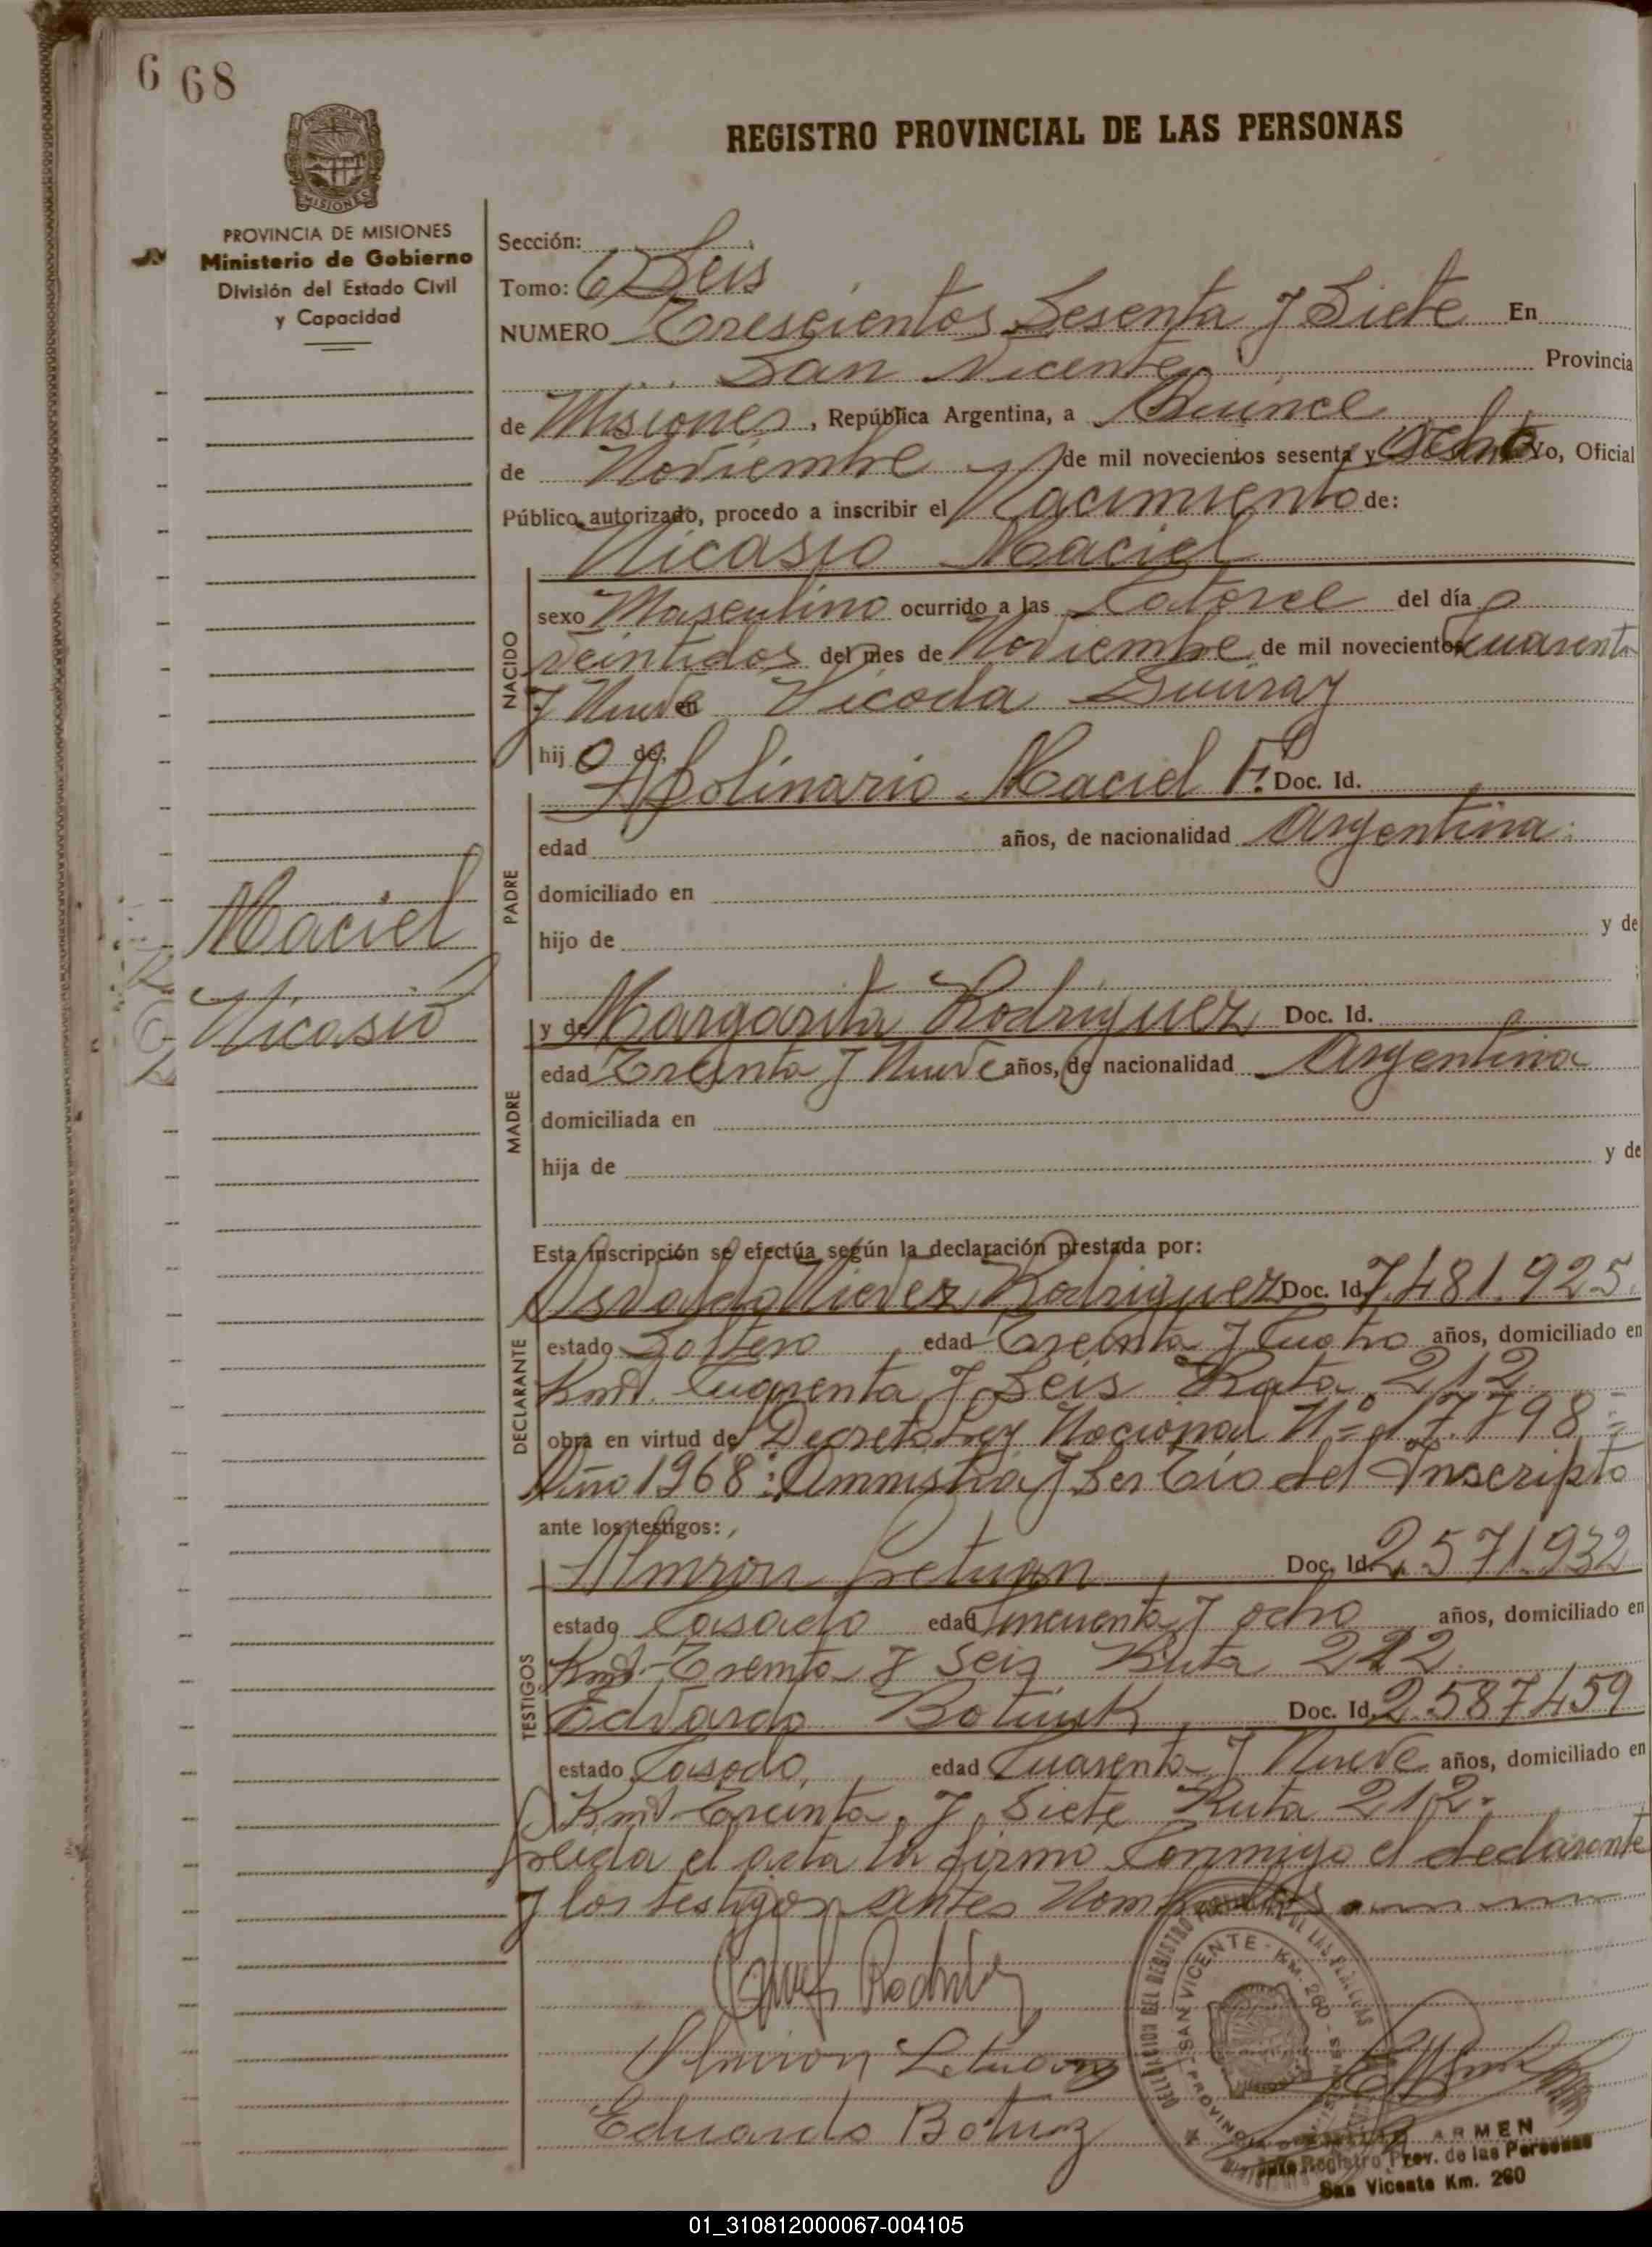 6 68
REGISTRO PROVINCIAL DE LAS PERSONAS
PROVINCIA DE MISIONES
Ministerio de Gobierno
División del Estado Civil
y Capacidad
Sección:
Tomo: 6 Seis
NUMERO Trescientos Sesenta y Siete En
San Vicente Provincia
de Misiones, República Argentina, a Quince
de Noviembre de mil novecientos sesenta y ocho Yo, Oficial
Público autorizado, procedo a inscribir el Nacimiento de:
Nicasio Maciel
NACIDO
sexo Masculino ocurrido a las Catorce del día
veintidos del mes de Noviembre de mil novecientos cuarenta
y Nueve en Picada
hijo de:
PADRE
Apolinario Maciel F. Doc. Id.
edad años, de nacionalidad Argentina
domiciliado en
hijo de y de
Maciel
Nicasio
MADRE
y de Margarita Rodriguez Doc. Id.
edad Treinta y Nueve años, de nacionalidad Argentina
domiciliada en
hija de y de
Esta inscripción se efectúa según la declaración prestada por:
DECLARANTE
Osvaldo Nievez Rodriguez Doc. Id. 7.481.925
estado Soltero, edad Treinta y Cuatro años, domiciliado en
Kmt. Cuarenta y Seis Ruta 212
obra en virtud de Decreto Ley Nacional Nº 17.798
Año 1968: Amnistia y Ser Tio del Inscripto
ante los testigos:
TESTIGOS
Almiron Doc. Id. 2.571.932
estado Casado edad Cincuenta y ocho años, domiciliado en
Kmt. Treinta y Seis Ruta 212
Edvardo Doc. Id. 2.587.459
estado Casado, edad Cuarenta y Nueve años, domiciliado en
Kmt. Treinta y Siete Ruta 212.
Leida el acta la firmo Conmigo el declarante
y los testigos antes Nombrados
Almiron
Eduardo
DELEGACION DEL REGISTRO PROVINCIAL DE LAS PERSONAS
SAN VICENTE - KM. 260
PROVINCIA
ARMEN
Jefe Registro Prov. de las Personas
San Vicente Km. 260
01_310812000067-004105